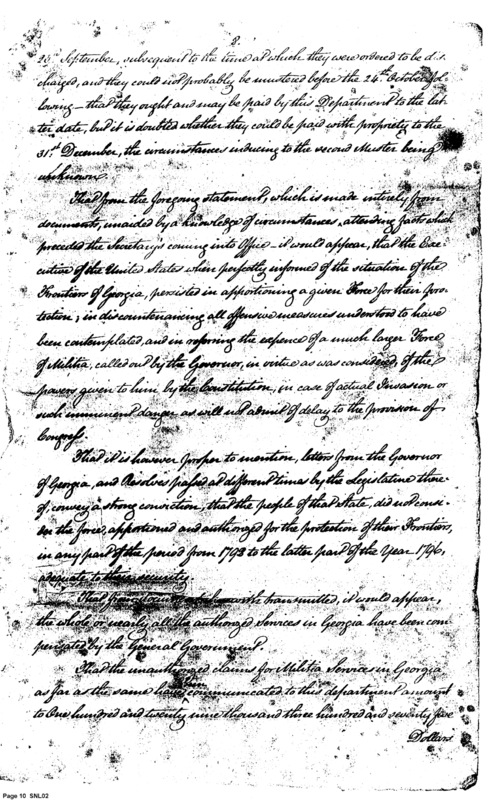 2.
25th September, subsequent to the time at which they were ordered to be dis-
charged, and they could not probably be mustered before the 24th October fol
lowing – that they ought and may be paid by this Department to the lat-
ter date, but it is doubted whether they could be paid with propriety to the
31st December, the circumstances inducing to the second Muster being
unknown.
That from the foregoing statement, which is made intirely from
documents, unaided by a knowledge of circumstances, attending facts which
preceded the Secretary's coming into Office – it would appear, that the Exe-
cutive of the United States when perfectly informed of the situation of the
Frontiers of Georgia, persisted in apportioning a given Force for their pro-
tection; in discountenancing all offensive measures understood to have
been contemplated, and in referring the expence of a much larger Force
of Militia, called out by the Governor, in virtue as was considered, of the
powers given to him by the Constitution, in case of actual Invasion or
such imminent danger as will not admit of delay to the provision of
Congress.
That it is however proper to mention, letters from the Governor
of Georgia, and Resolves passed at different times by the Legislature there-
of, convey a strong conviction, that the people of that State, did not consi-
der the force, apportioned and authorized for the protection of their Frontiers,
in any part of the period from 1793 to the latter part of the Year 1796,
adequate to their security.
That from documents transmitted, it would appear,
the whole or nearly all the authorized Services in Georgia have been com
pensated by the General Government.
That the unauthorized claims for Militia Services in Georgia
as far as the same have been communicated to this department amount
to One hundred and twenty nine thousand three hundred and seventy five
Dollars
Page 10 SNL02